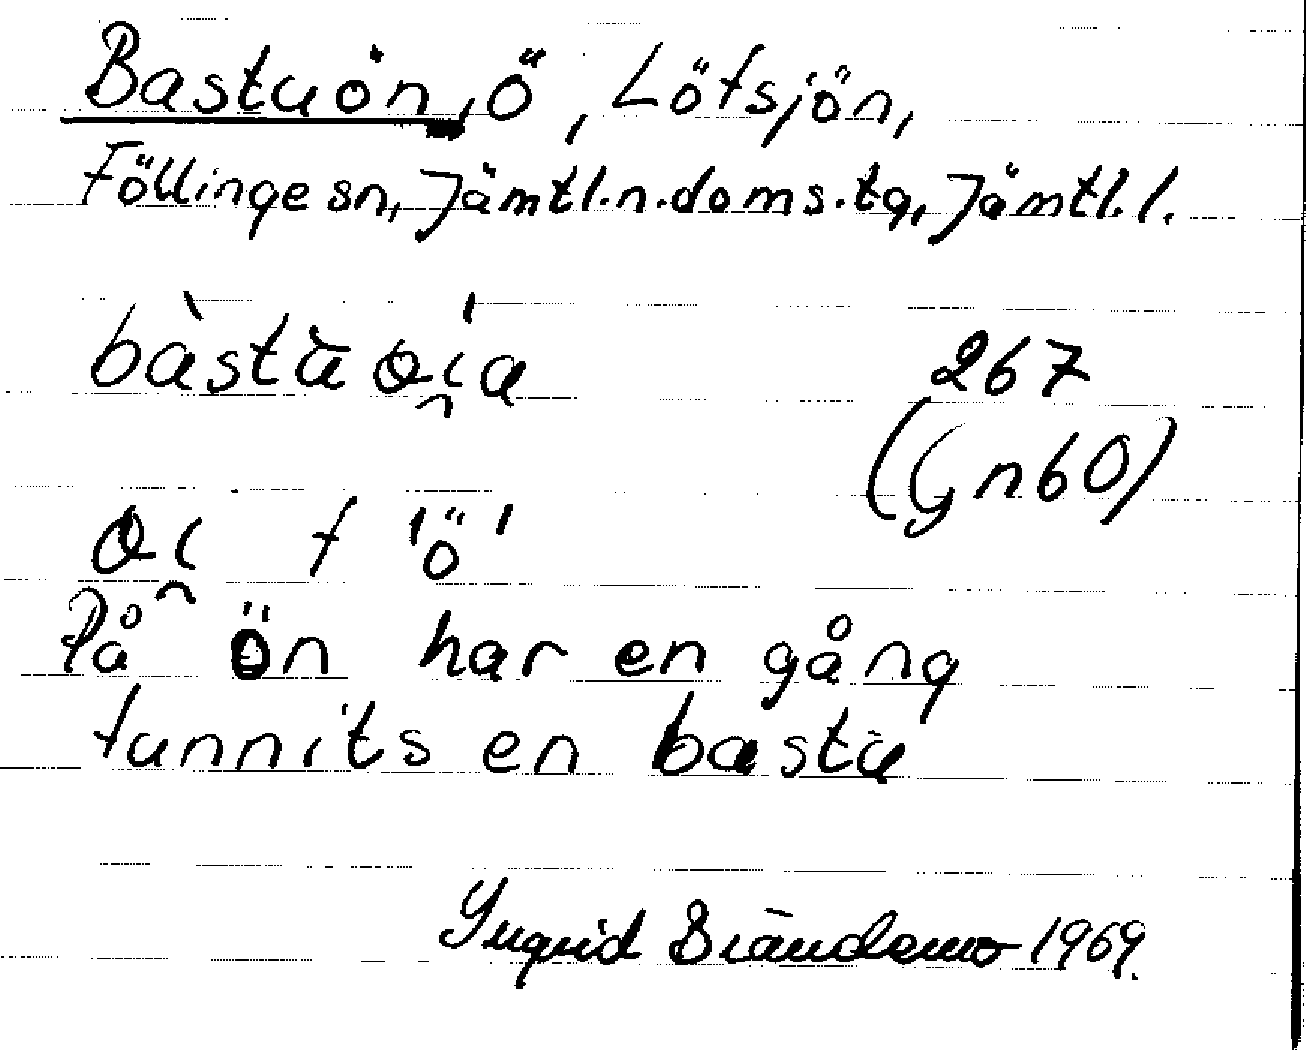 Bastuön, ö, Lötsjön,
Föllinge sn, Jämtl.n.doms.tg, Jämtl.l.
267
(Gn60)
f 'ö'
På ön har en gång
funnits en bastu
Ingrid Brändemo 1969.